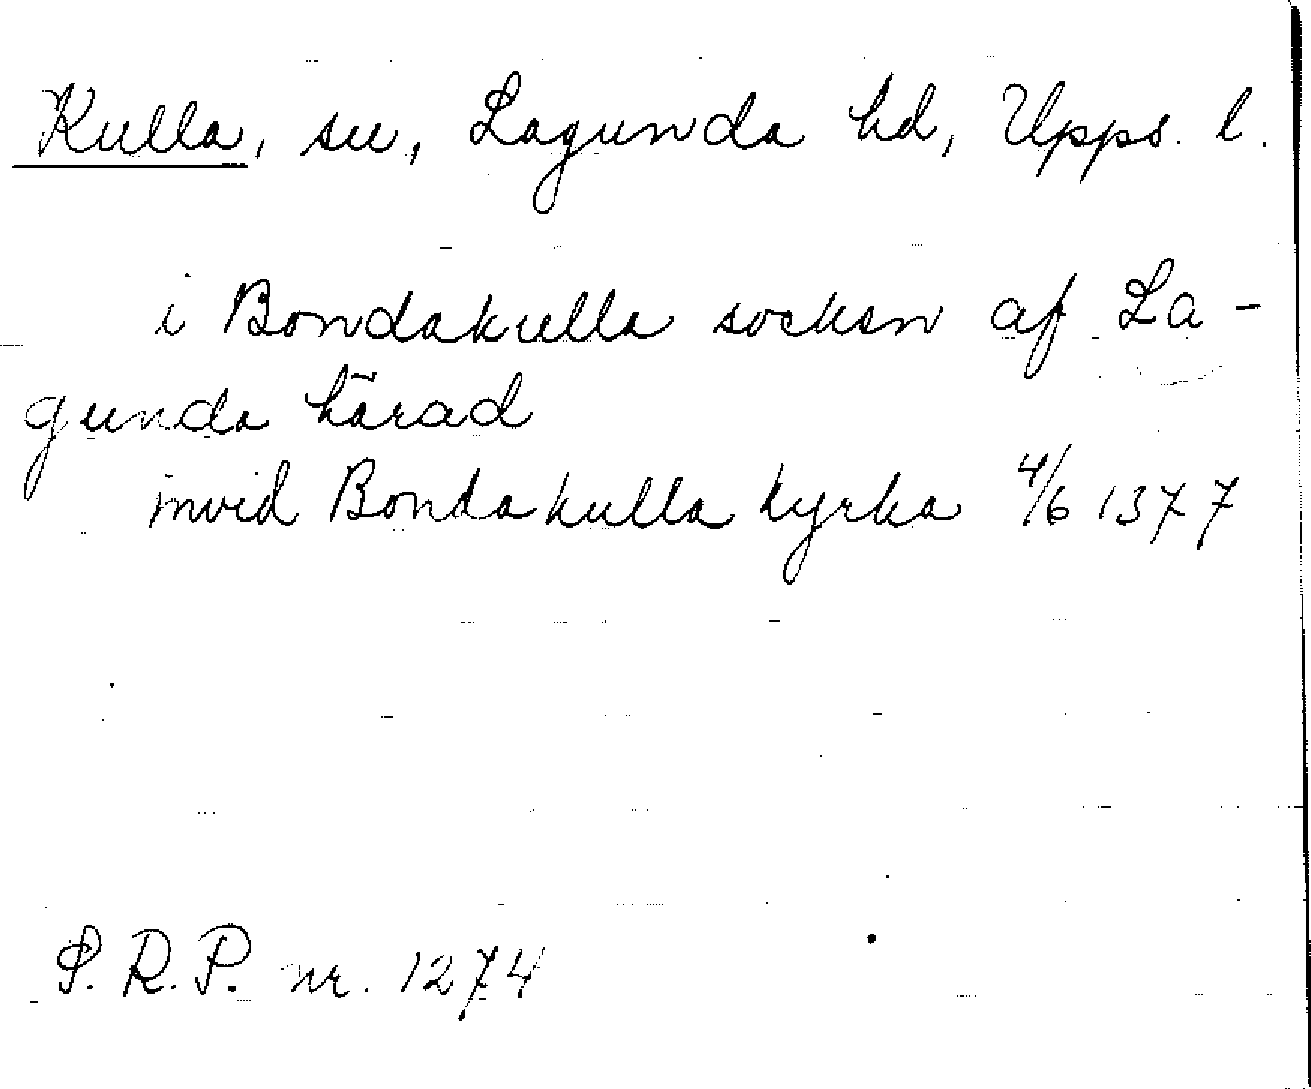 Kulla, sn, Lagunda hd, Upps. l.
i Bondakulla socken af La-
gunda härad
invid Bondakulla kyrka 4/6 1377
S.R.P. nr. 1274